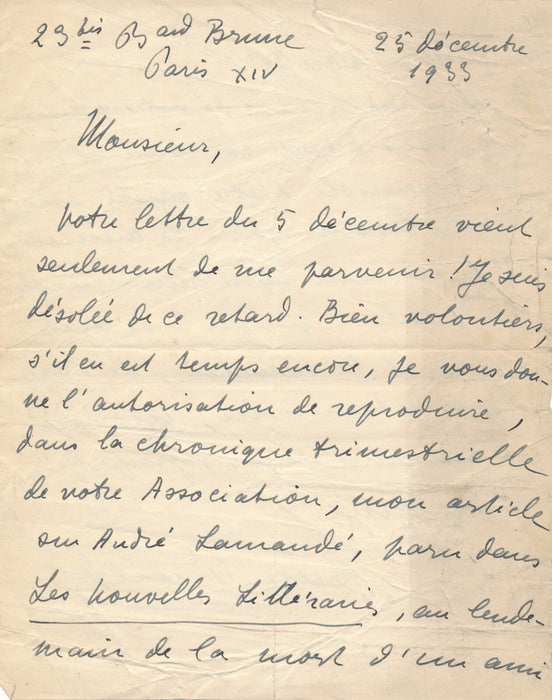 23bis Bard Brune 25 décembre
Paris XIV 1933
Monsieur,
Votre lettre du 5 décembre vient
seulement de me parvenir ! Je suis
désolée de ce retard. Bien volontiers,
s'il en est temps encore, je vous don-
ne l'autorisation de reproduire,
dans la chronique trimestrielle
de votre Association, mon article
sur André Lamandé, paru dans
Les Nouvelles Littéraires, au lende-
main de la mort d'un ami